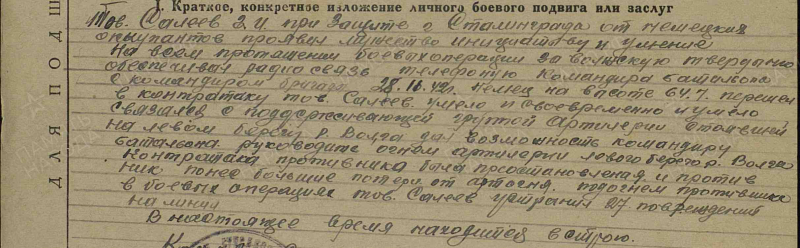 I. Краткое, конкретное изложение личного боевого подвига или заслуг
Тов. Салеев З.И при защите г Сталинграда от немецких
окупантов проявил мужество инициативу и умение
На всем протяжении боевых операции за волжскую твердыню
обеспечивал радио связь телефоную командира батальона
с командиром бригады 28.10.42г. Немец на высоте 64.7. перешел
в контратаку тов. Салеев умело и своевременно и умело
связался с поддерживающей групой Артилерии стоявшей
на левом берегу р. Волга дал возможность командиру
батальона руководить огнем артилерии левого берега р. Волга
Контратака противника была приостановленая и против
ник понес большие потери от артогня. под огнем противника
в боевых операциях тов. Салеев устранил 27 повреждений
на линии
В настоящее время находится в строю.
ДЛЯ ПОДШ